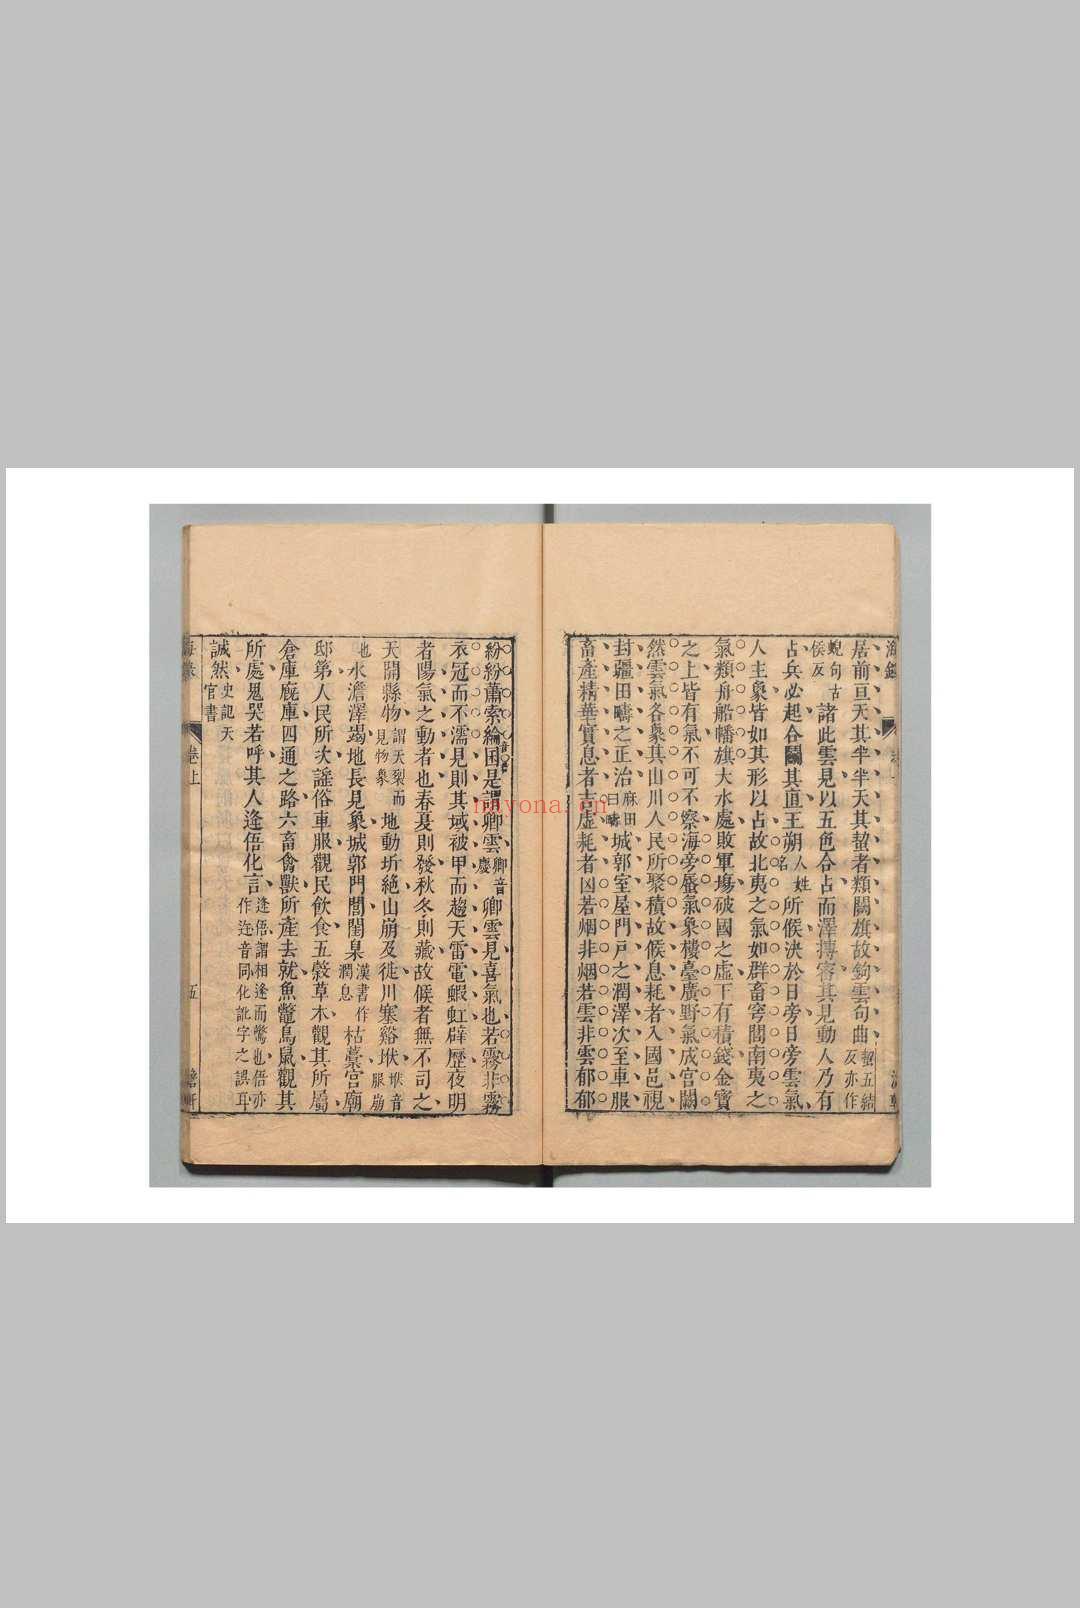 海錄
居前亘天其半半天其蛪者類闕旗故鉤雲句曲蛪五結反亦作
蜺句古侯反諸此雲見以五色合占而澤摶密其見動人乃有
占兵必起合鬭其直王朔人姓名所候決於日旁日旁雲氣
人主象皆如其形以占故北夷之氣如群畜穹閭南夷之
氣類舟船幡旗大水處敗軍塲破國之虛下有積錢金寶
之上皆有氣不可不察海旁蜃氣象樓臺廣野氣成宮闕
然雲氣各象其山川人民所聚積故候息耗者入國邑視
封疆田疇之正治麻田曰疇城郭室屋門戶之潤澤次至車服
畜產精華實息者吉虛耗者凶若烟非烟若雲非雲郁郁
紛紛蕭索綸囷是謂卿雲卿音慶卿雲見喜氣也若霧非霧
衣冠而不濡見則其域被甲而趨天雷電蝦虹辟歷夜明
者陽氣之動者也春夏則發秋冬則藏故候者無不司之
天開縣物謂天裂而見物象地動坼絶山崩及徙川塞谿垘垘音服崩
地水澹澤竭地長見象城郭門閭閨臬漢書作潤息枯藁宮廟
邸第人民所次謠俗車服觀民飲食五穀草木觀其所屬
倉庫廐庫四通之路六畜禽獸所產去就魚鼈鳥鼠觀其
所處鬼哭若呼其人逢俉化言逢俉謂相逢而驚也俉亦作迕音同化訛字之誤耳
誠然史記天官書
卷上
五
nayona.cn